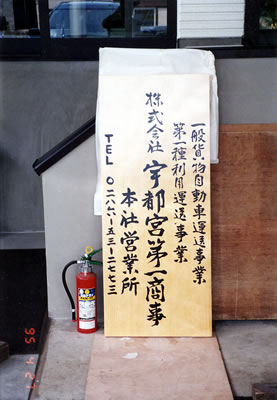 一般貨物自動車運送事業
第一種利用運送事業
株式会社 宇都宮第一商事
本社営業所
TEL 〇二八六ー五三ー二七七三